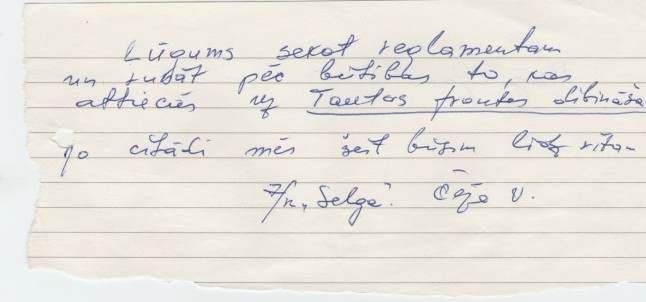 Lūgums sekot reglamentam
un runāt pēc būtības to, kas
attiecās uz Tautas frontes dibināša
jo citādi mēs šeit būsim līdz rītam
"Selga".